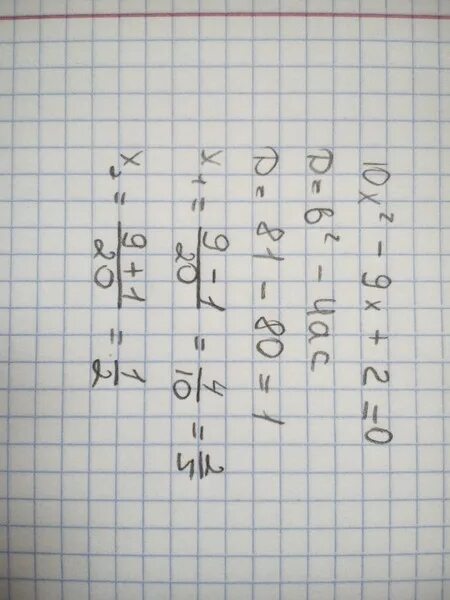 10x² - 9x + 2 = 0
D = b² - 4ac
D = 81 - 80 = 1
x₁ = \frac{9 - 1}{20} = \frac{4}{10} = \frac{2}{5}
x₂ = \frac{9 + 1}{20} = \frac{1}{2}